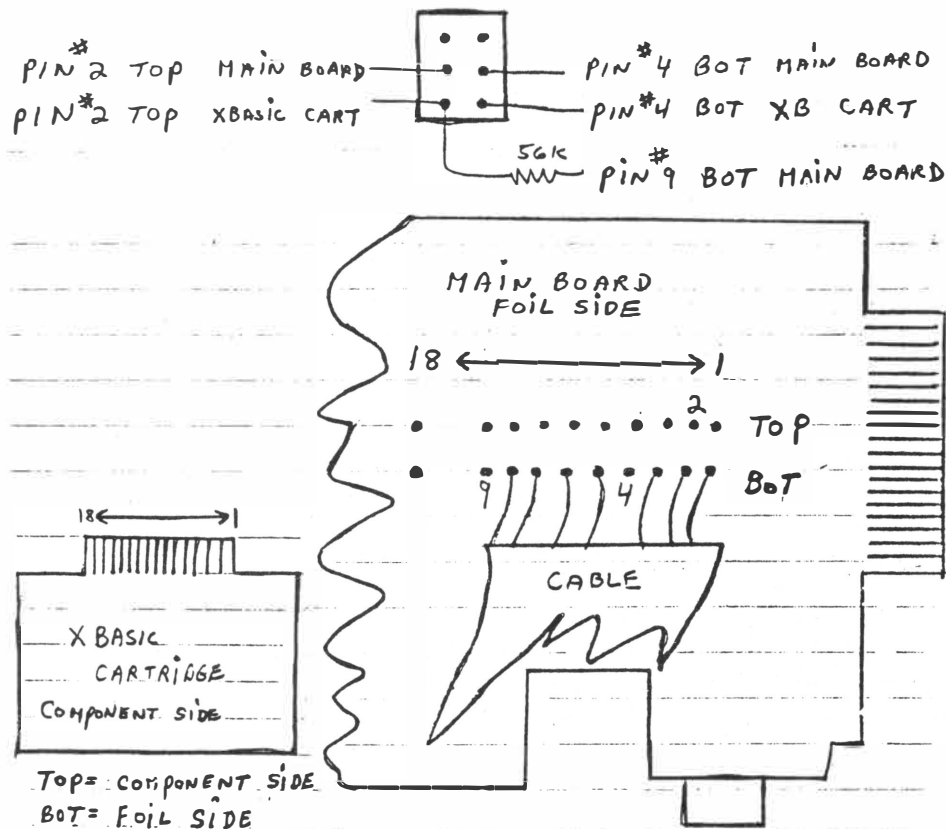 PIN #2 TOP MAIN BOARD
PIN #4 BOT MAIN BOARD
PIN #2 TOP XBASIC CART
PIN #4 BOT XB CART
56K
PIN #9 BOT MAIN BOARD
MAIN BOARD
FOIL SIDE
18 1
2
TOP
9 4 BOT
18 1
CABLE
XBASIC
CARTRIDGE
COMPONENT SIDE
TOP= COMPONENT SIDE
BOT= FOIL SIDE